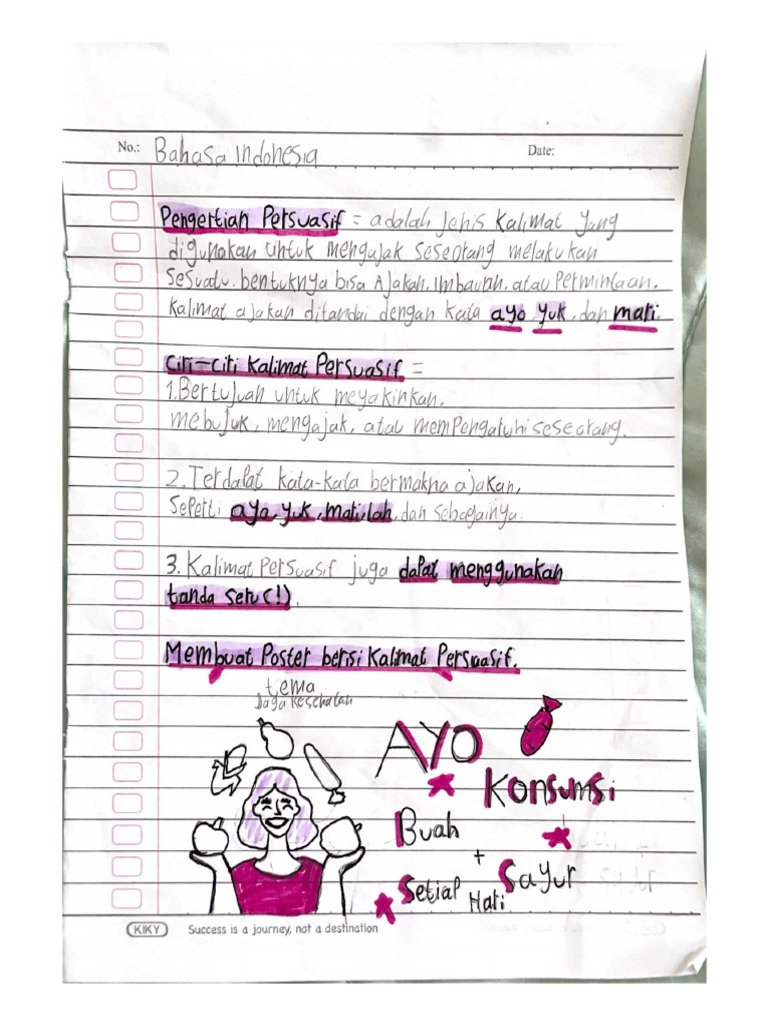 No.: Bahasa Indonesia Date:
Pengertian Persuasif = adalah jenis Kalimat yang
digunakan untuk mengajak seseorang melakukan
sesuatu. bentuknya bisa Ajakan. Imbauan. atau Permintaan.
Kalimat ajakan ditandai dengan kata ayo, yuk, dan mari.
Ciri-Ciri Kalimat Persuasif =
1. Bertujuan untuk meyakinkan,
mebujuk, mengajak, atau mempengaruhi seseorang.
2. Terdapat kata-kata bermakna ajakan,
seperti ayo, yuk, marilah, dan sebagainya.
3. Kalimat Persuasif juga dapat menggunakan
tanda seru (!).
Membuat Poster berisi Kalimat Persuasif.
tema
Jaga Kesehatan
AYO
Konsumsi
Buah
+
Sayur
Setiap
Hari
KIKY Success is a journey, not a destination